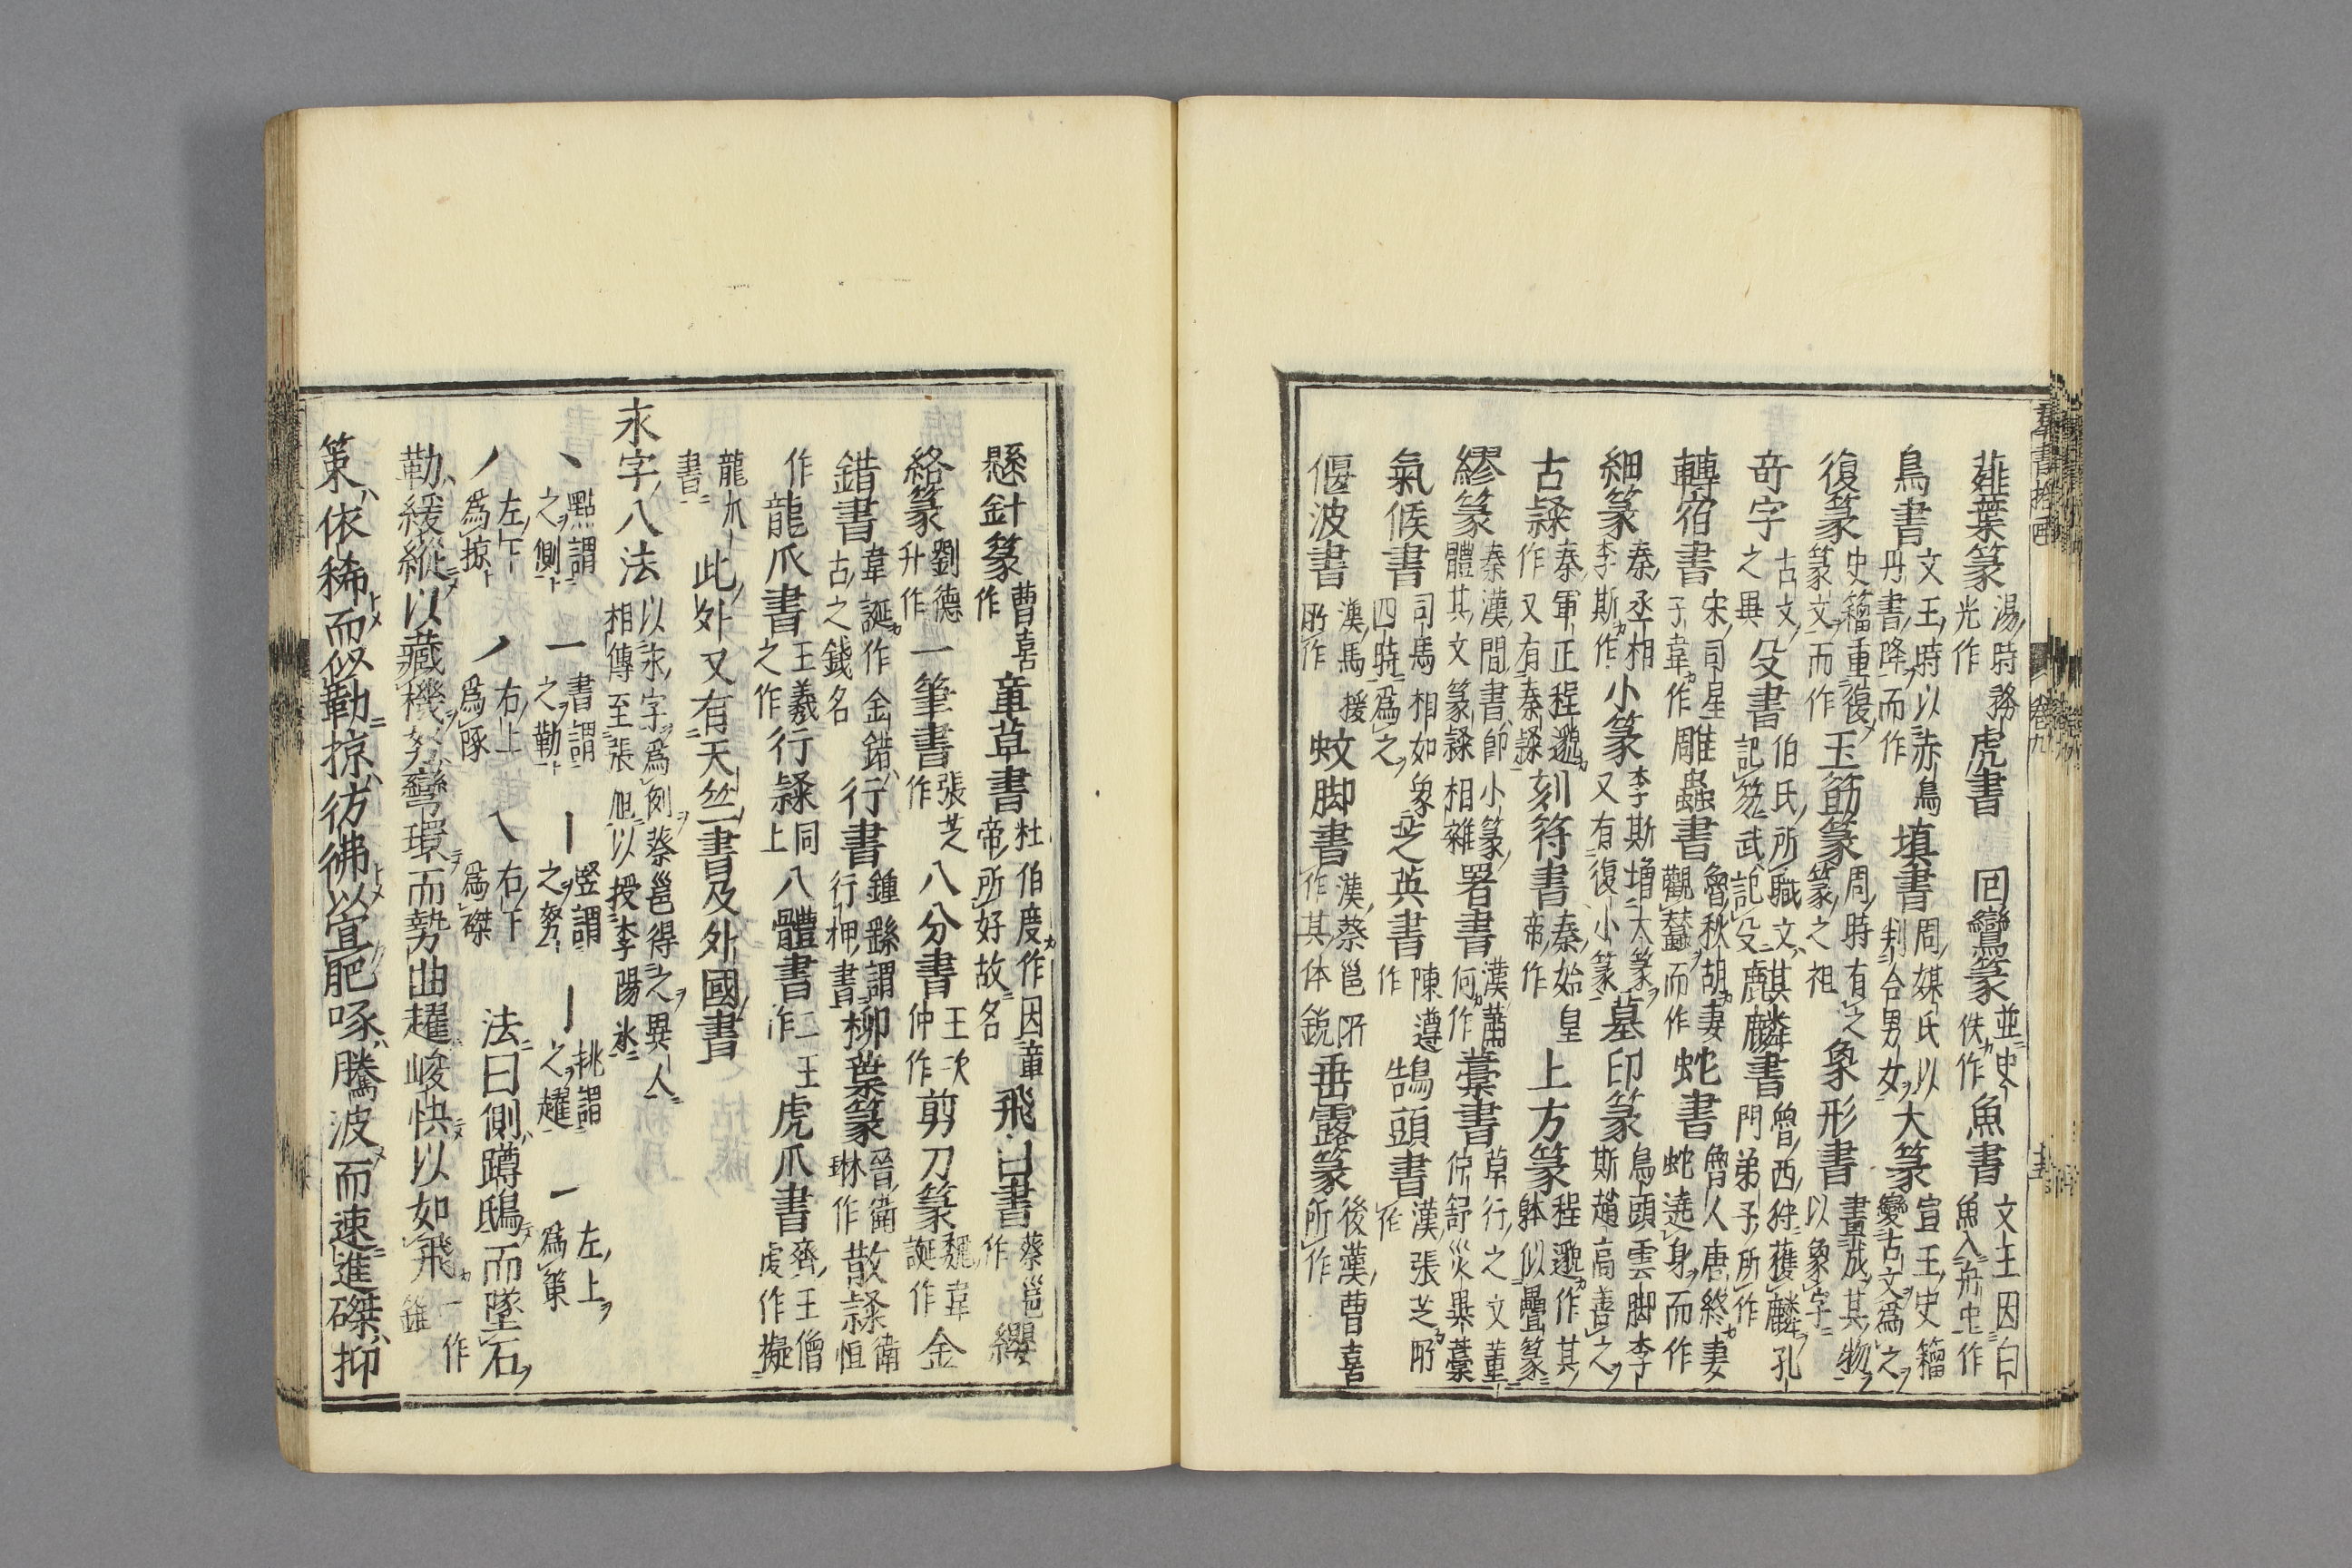 薤葉篆 湯時務光作 虎書 回鸞篆 並史佚作 魚書 文王因白魚入舟史作
鳥書 文王時以赤鳥丹書降而作 填書 周媒氏以判合男女 大篆 宣王史籀變古文為之
復篆 史籀重復篆文而作 玉筯篆 周時有之篆之祖 象形書 畫成其物以象字
奇字 古文之異 殳書 伯氏所職文記笏武記殳 麒麟書 魯西狩獲麟孔門弟子所作
轉宿書 宋司星子韋作 雕蟲書 魯秋胡妻觀蠶而作 蛇書 魯人唐終妻蛇遶身而作
細篆 秦丞相李斯作 小篆 李斯増大篆又有復小篆 墓印篆 鳥頭雲脚李斯趙高善之
古隸 秦軍正程邈作又有秦隸 刻符書 秦始皇帝作 上方篆 程邈作其躰似疊篆
繆篆 秦漢間書即小篆體其文篆隸相雜 署書 漢蕭何作 藁書 草行之文董仲舒災異藁
氣候書 司馬相如象四時為之 芝英書 陳遵作 鵠頭書 漢張芝所作
偃波書 漢馬援所作 蚊脚書 漢蔡邕所作其体鋭 垂露篆 後漢曹喜所作
懸針篆 曹喜作 章草書 杜伯度作因章帝所好故名 飛白書 蔡邕作 纓
絡篆 劉德升作 一筆書 張芝作 八分書 王次仲作 剪刀篆 魏韋誕作 金
錯書 韋誕作金錯古之錢名 行書 鍾繇謂行柙書 柳葉篆 晉衛琳作 散隸 衛恒
作 龍爪書 王羲之作 行隸 同上 八體書 二王作 虎爪書 齊王僧虔作擬
龍爪書 此外又有天竺書及外國書
永字八法 以永字為例蔡邕得之異人相傳至張旭以授李陽氷
丶 點謂之側 一 書謂之勒 丨 竪謂之努 亅 挑謂之趯 一 左上為策
丿 左下為掠 丿 右上為啄 乀 右下為磔 法曰側蹲鴟而墜石
勒緩縱以藏機努彎環而勢曲趯峻快以如飛 一作錐
策依稀而似勒掠彷彿以宜肥啄騰波而速進磔抑